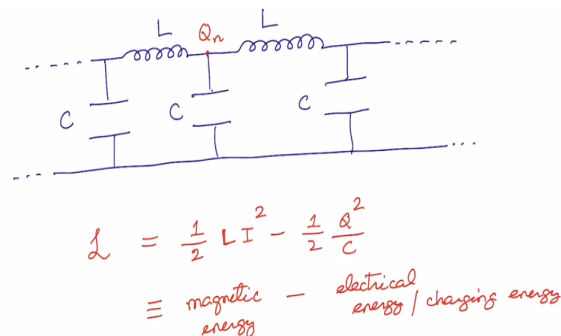 L
Qn
L
C
C
C
ℒ = 1/2 L I² - 1/2 Q²/C
≡ magnetic energy - electrical energy / charging energy